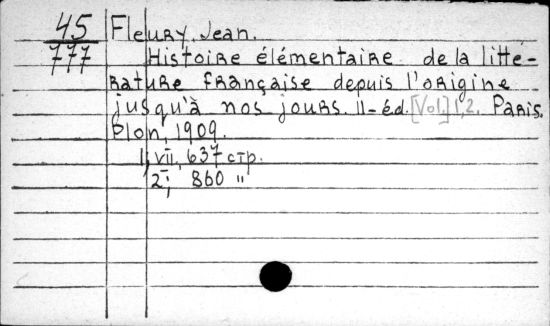 45 Fleury, Jean.
777 Histoire élémentaire de la litté-
rature française depuis l'origine
jusqu'à nos jours. 11-éd. [Vol.] 1, 2. Paris.
Plon, 1909.
1; VII, 637 стр.
2; 860 "